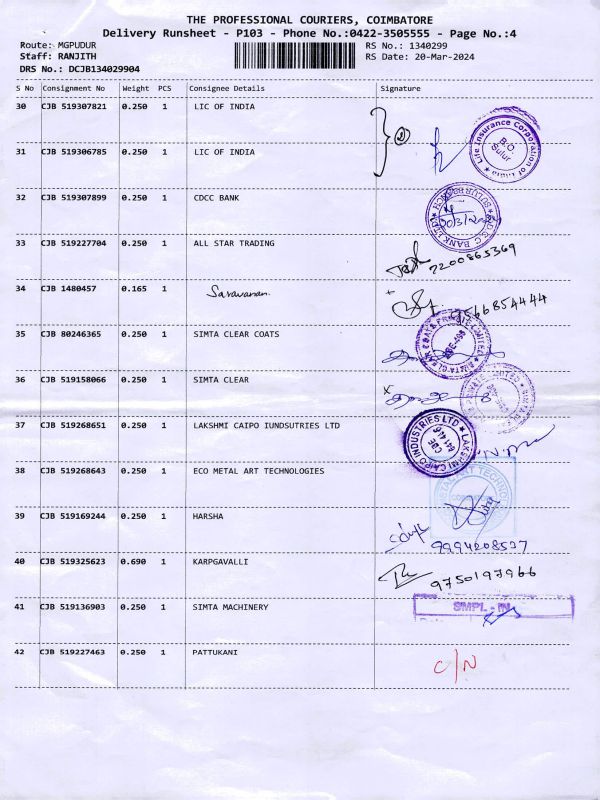 THE PROFESSIONAL COURIERS, COIMBATORE
Delivery Runsheet - P103 - Phone No.:0422-3505555 - Page No.:4
Route: MGPUDUR RS No.: 1340299
Staff: RANJITH RS Date: 20-Mar-2024
DRS No.: DCJB134029904
S No Consignment No Weight PCS Consignee Details Signature
30 CJB 519307821 0.250 1 LIC OF INDIA
2
Life Insurance Corporation of India
B.O.
Sulur
31 CJB 519306785 0.250 1 LIC OF INDIA
32 CJB 519307899 0.250 1 CDCC BANK
33 CJB 519227704 0.250 1 ALL STAR TRADING
7200865369
34 CJB 1480457 0.165 1 Saravanan
9566854444
35 CJB 80246365 0.250 1 SIMTA CLEAR COATS
36 CJB 519158066 0.250 1 SIMTA CLEAR
37 CJB 519268651 0.250 1 LAKSHMI CAIPO IUNDSUTRIES LTD
LAKSHMI CAIPO INDUSTRIES LTD
CBE
641 416
38 CJB 519268643 0.250 1 ECO METAL ART TECHNOLOGIES
39 CJB 519169244 0.250 1 HARSHA
9994208537
40 CJB 519325623 0.690 1 KARPGAVALLI
9750197966
41 CJB 519136903 0.250 1 SIMTA MACHINERY
SMPL - IN
42 CJB 519227463 0.250 1 PATTUKANI
C/N